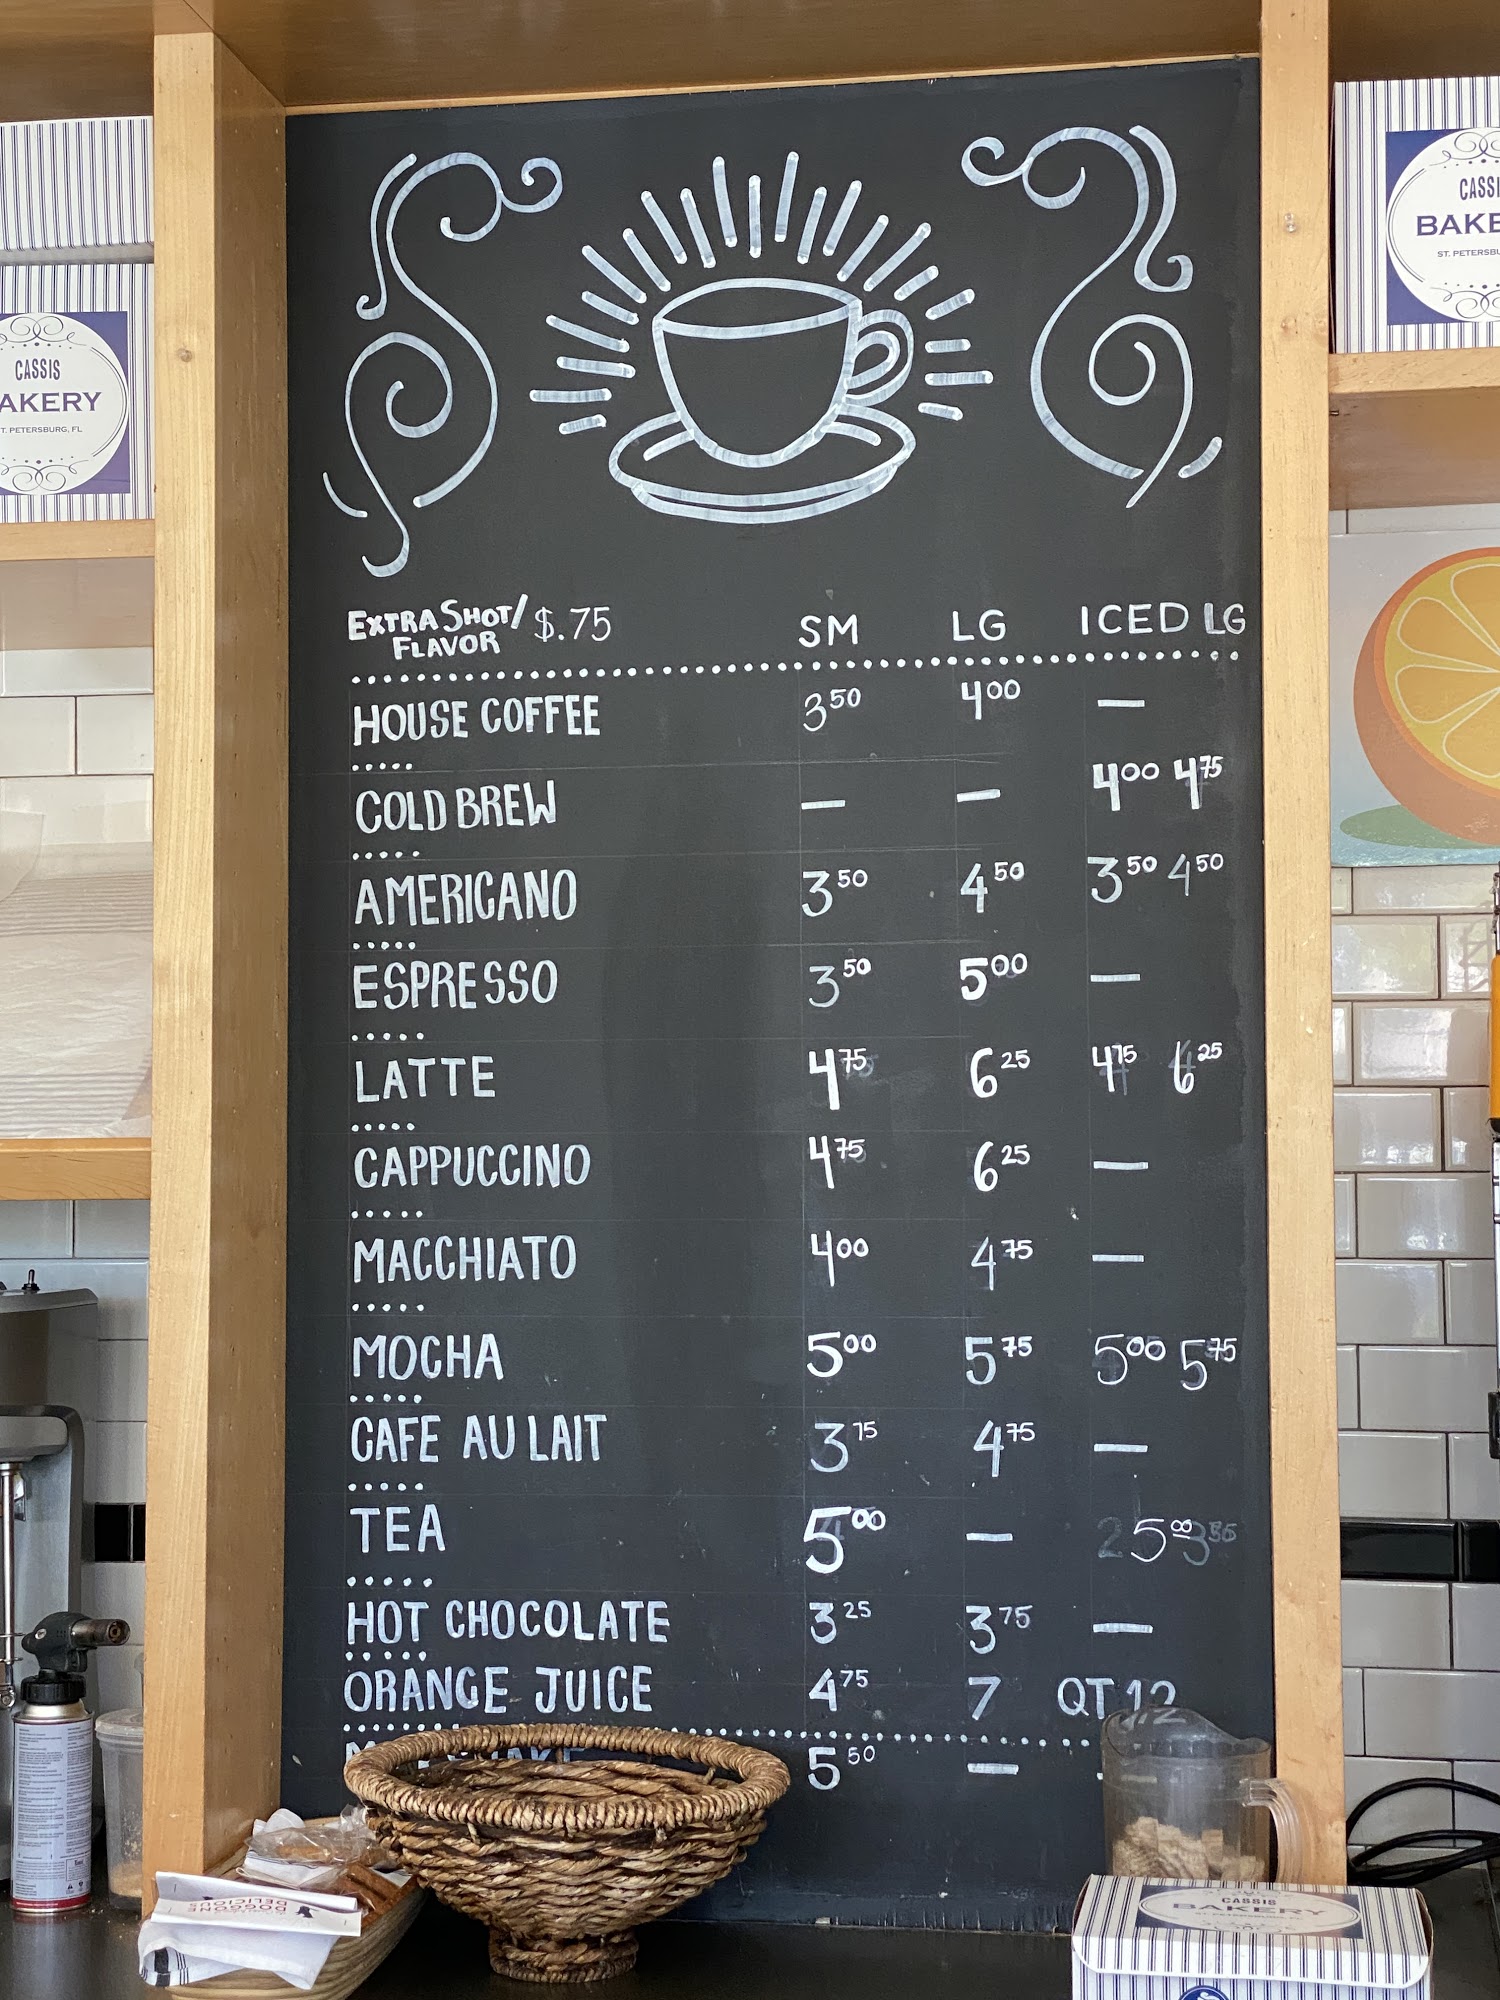 CASSIS
BAKERY
ST. PETERSBU
CASSIS
AKERY
T. PETERSBURG, FL
EXTRA SHOT/
FLAVOR $.75 SM LG ICED LG
HOUSE COFFEE 3 50 4 00 —
COLD BREW — — 4 00 4 75
AMERICANO 3 50 4 50 3 50 4 50
ESPRESSO 3 50 5 00 —
LATTE 4 75 6 25 4 75 6 25
CAPPUCCINO 4 75 6 25 —
MACCHIATO 4 00 4 75 —
MOCHA 5 00 5 75 5 00 5 75
CAFE AU LAIT 3 75 4 75 —
TEA 5 00 — 5 00
HOT CHOCOLATE 3 25 3 75 —
ORANGE JUICE 4 75 7 QT 12
5 50 —
DOGGONE
DELICIOUS
CASSIS
BAKERY